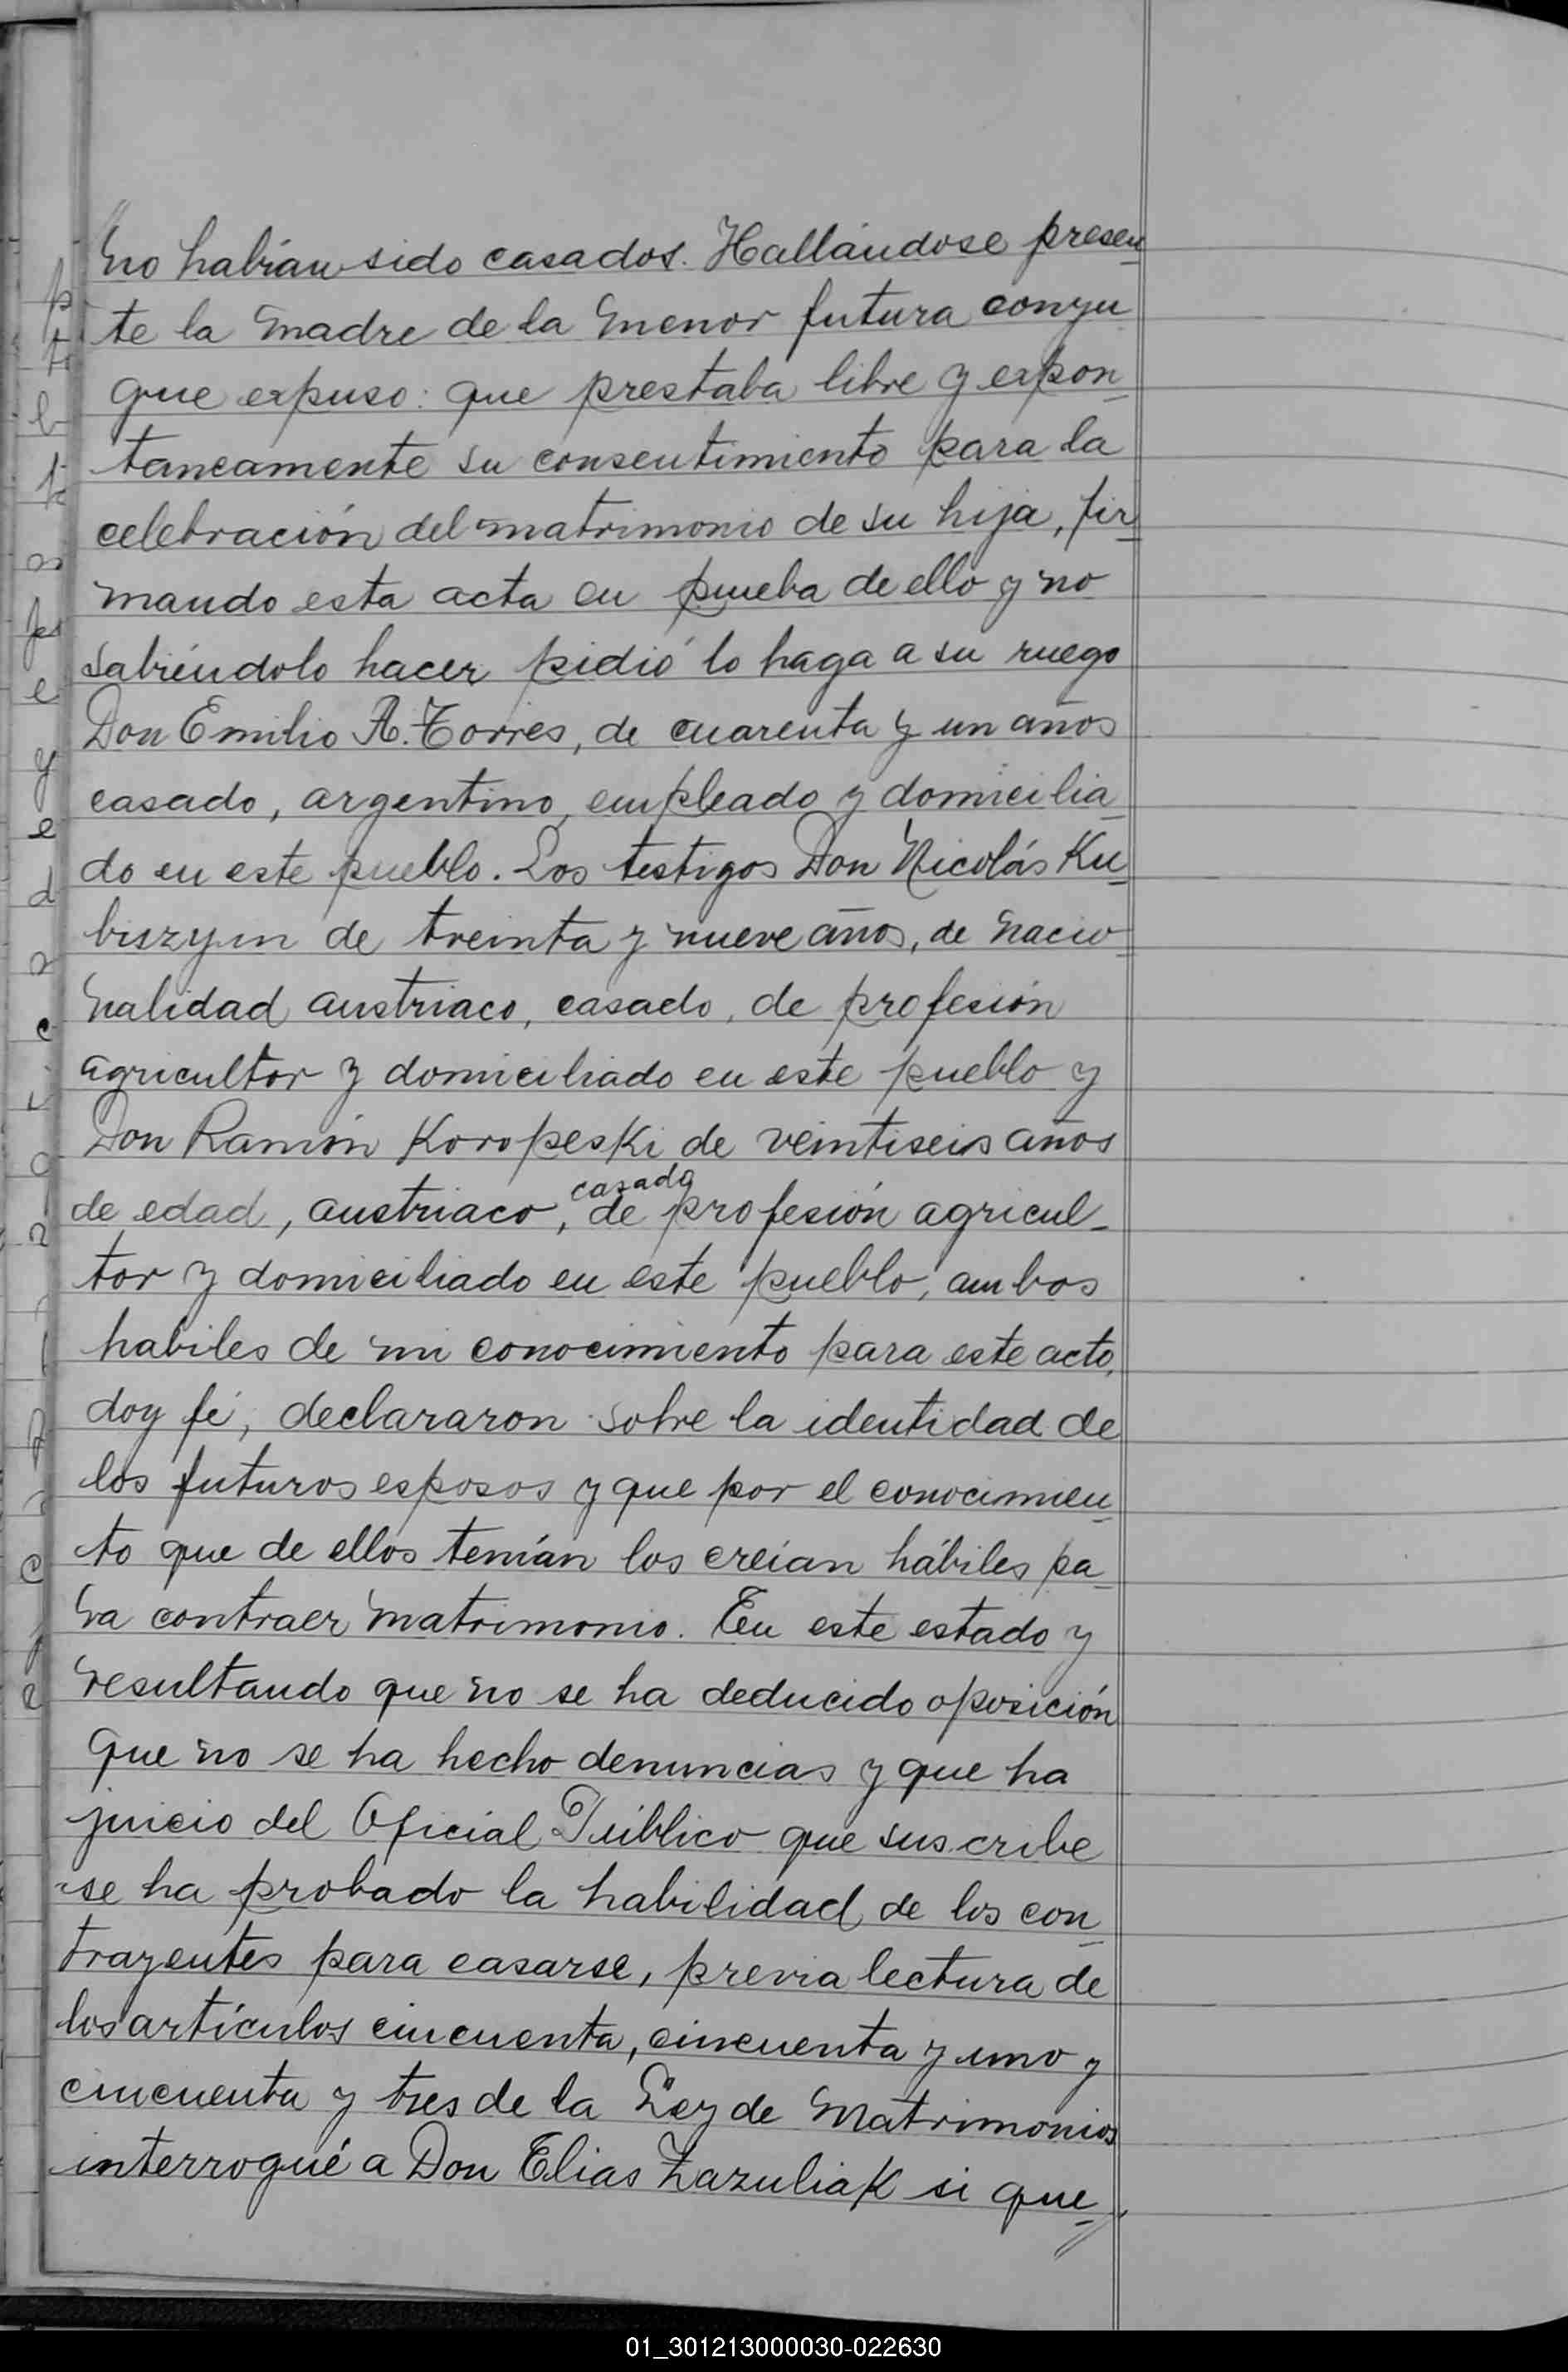 no habían sido casados. Hallándose presen
te la madre de la menor futura conyu
gue expuso: que prestaba libre y expon
taneamente su consentimiento para la
celebración del matrimonio de su hija, fir
mando esta acta en prueba de ello y no
sabiéndolo hacer pidió lo haga a su ruego
Don Emilio A. Torres, de cuarenta y un años
casado, argentino, empleado y domicilia
do en este pueblo. Los testigos Don Nicolás Ku
biszyn de treinta y nueve años, de nacio
nalidad austriaco, casado, de profesión
agricultor y domiciliado en este pueblo y
Don Ramón Koropeski de veintiseis años
casado
de edad, austriaco, de profesión agricul-
tor y domiciliado en este pueblo, ambos
habiles de mi conocimiento para este acto,
doy fé, declararon sobre la identidad de
los futuros esposos y que por el conocimien
to que de ellos tenían los creían hábiles pa
ra contraer matrimonio. En este estado y
resultando que no se ha deducido oposición
que no se ha hecho denuncias y que ha
juicio del Oficial Público que suscribe
se ha probado la habilidad de los con
trayentes para casarse, previa lectura de
los artículos cincuenta, cincuenta y uno y
cincuenta y tres de la Ley de Matrimonios
interrogué a Don Elias Zazuliak si que
01_301213000030-022630